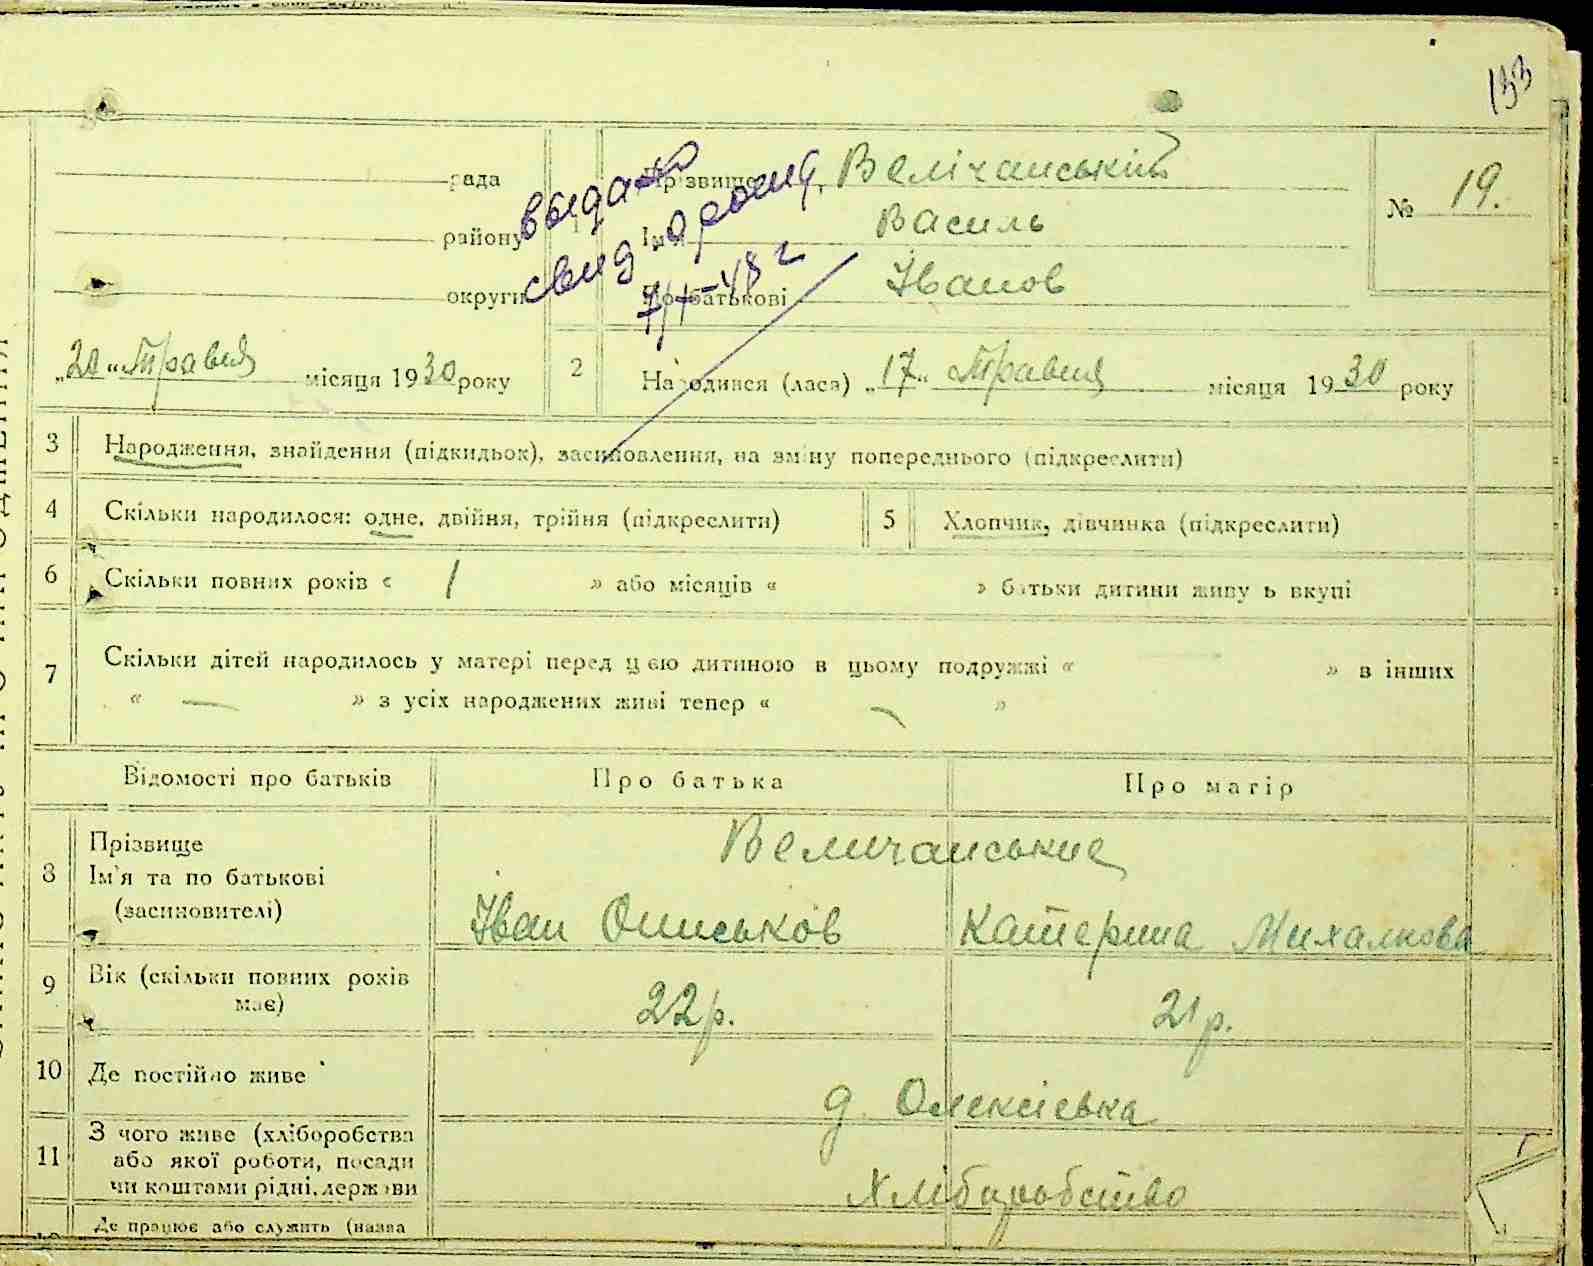 133
рада
району
округи
видано
свид. о рожд.
Прізвище Велічанський
Ім'я Василь
По батькові Іванов
№ 19.
1
„20“ Травня місяця 1930 року
2 Народився (лася) „17“ Травня місяця 1930 року
3 Народження, знайдення (підкидьок), засиновлення, на зміну попереднього (підкреслити)
4 Скільки народилося: одне, двійня, трійня (підкреслити)
5 Хлопчик, дівчинка (підкреслити)
6 Скільки повних років « 1 » або місяців « » батьки дитини живуть вкупі
7 Скільки дітей народилось у матері перед цією дитиною в цьому подружжі « — » в інших
« — » з усіх народжених живі тепер « — »
Відомості про батьків Про батька Про матір
8 Прізвище
Ім'я та по батькові
(засиновителі)
Величанські
Іван Ониськов Катерина Михалкова
9 Вік (скільки повних років
має)
22 р. 21 р.
10 Де постійно живе
д. Олексієвка
11 З чого живе (хліборобства
або якої роботи, посади
чи коштами рідні, держави
Хліборобство
Де працює або служить (назва